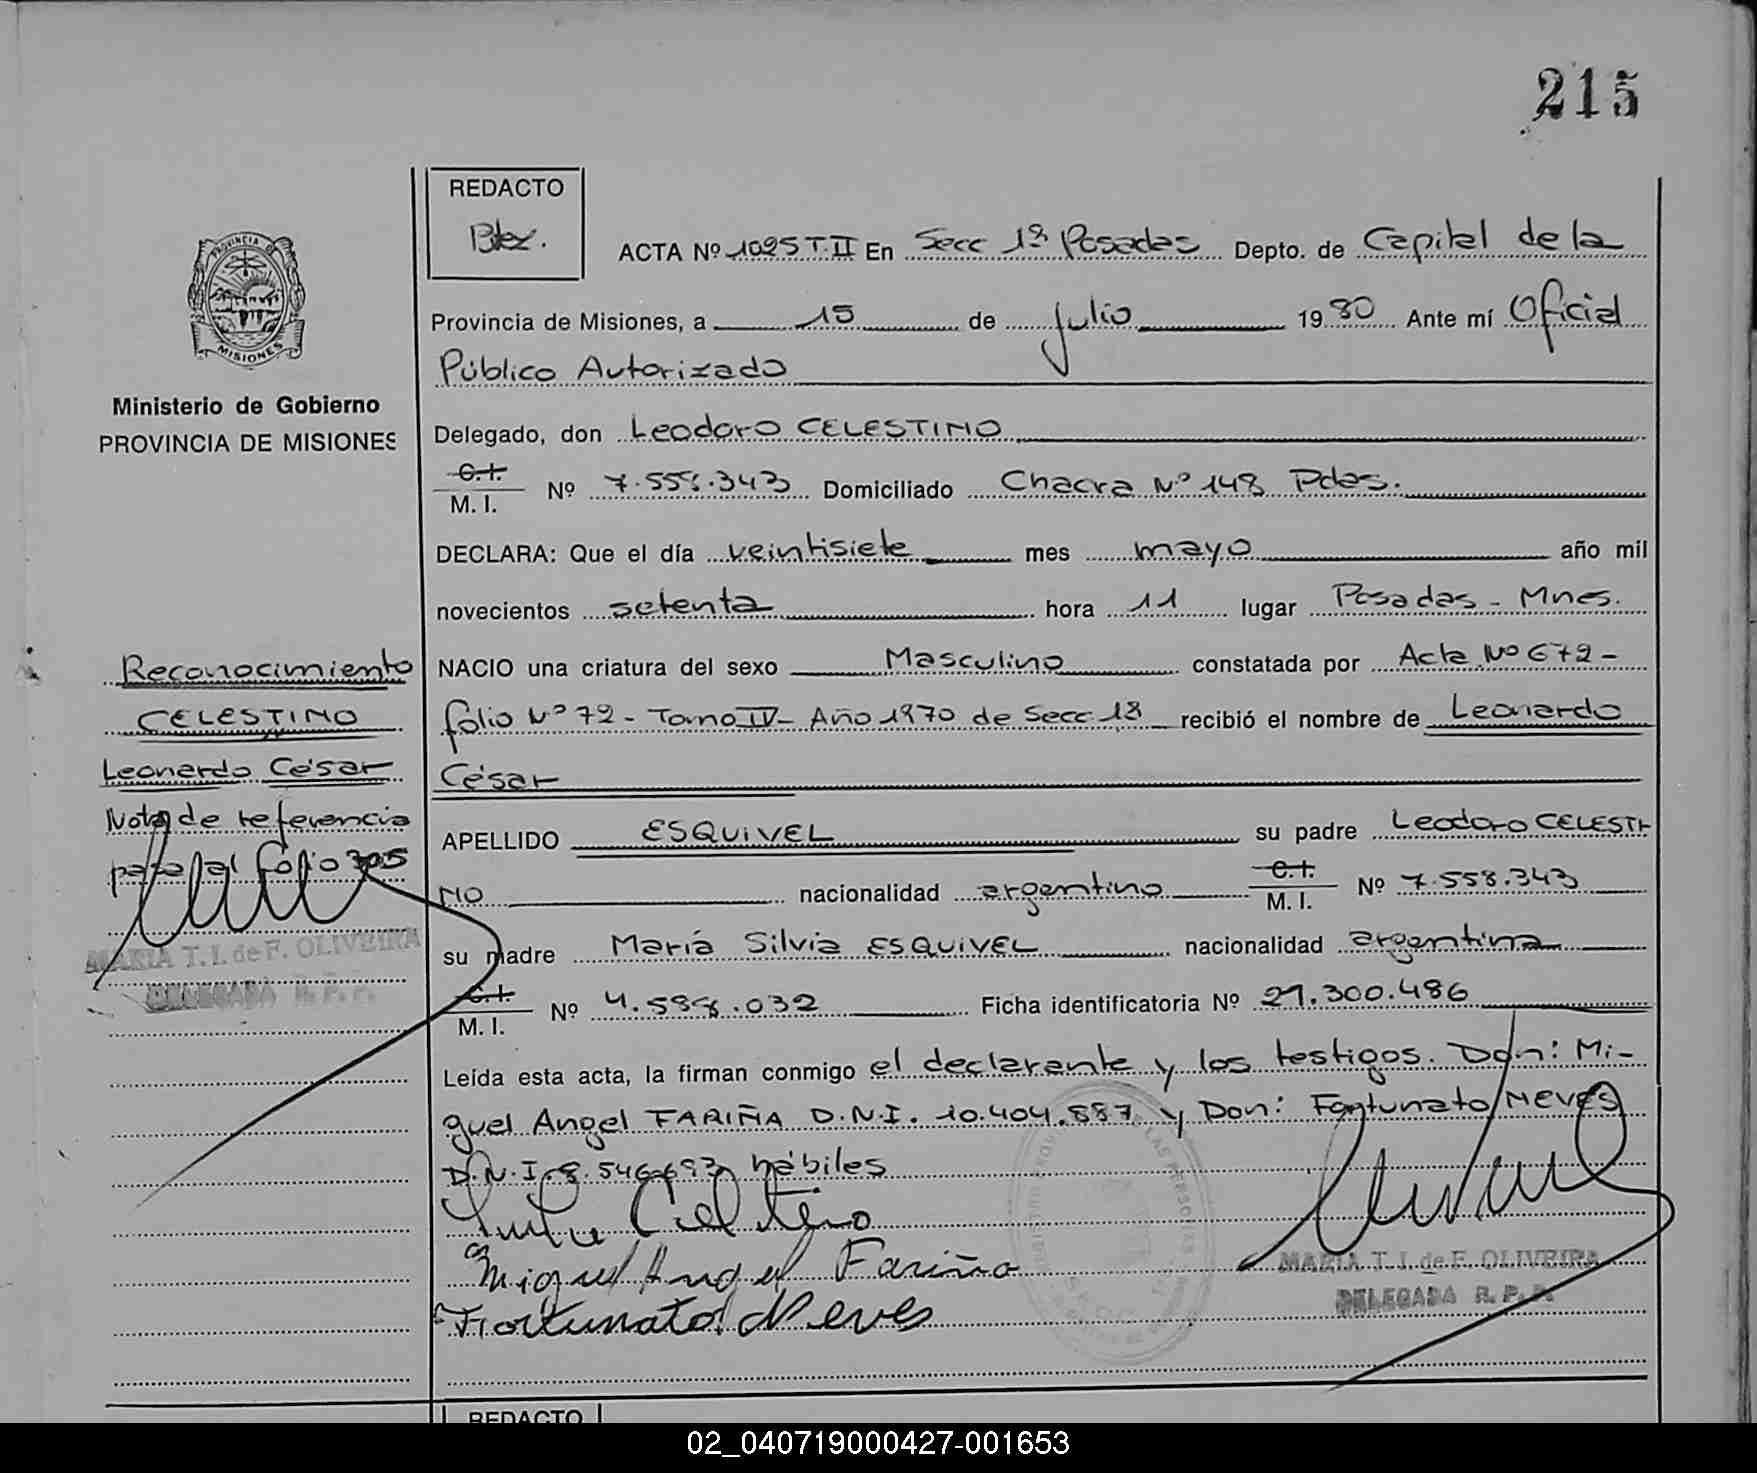 215
REDACTO
ACTA Nº 1095 T.II En Secc 1ª Posadas Depto. de Capital de la
Provincia de Misiones, a 15 de julio 1980 Ante mí Oficial
Público Autorizado
PROVINCIA DE MISIONES
Ministerio de Gobierno
PROVINCIA DE MISIONES
Delegado, don Leodoro CELESTINO
C.I.
M. I. Nº 7.558.343 Domiciliado Chacra Nº 148 Pdas.
DECLARA: Que el día veintisiete mes mayo año mil
novecientos setenta hora 11 lugar Posadas - Mnes.
Reconocimiento
CELESTINO
Leonardo César
Nota de referencia
para al folio 305
MARIA T. I. de F. OLIVEIRA
DELEGADA R. P. P.
NACIO una criatura del sexo Masculino constatada por Acta Nº 672 -
folio Nº 72 - Tomo IV - Año 1970 de Secc 1ª recibió el nombre de Leonardo
César
APELLIDO ESQUIVEL su padre Leodoro CELESTI-
NO nacionalidad argentino C.I. M. I. Nº 7.558.343
su madre María Silvia ESQUIVEL nacionalidad argentina
C.I.
M. I. Nº 4.588.032 Ficha identificatoria Nº 21.300.486
Leída esta acta, la firman conmigo el declarante y los testigos. Don: Mi-
guel Angel FARIÑA D.N.I. 10.404.887 y Don: Fortunato NEVES
D.N.I. 8.546.693 hábiles
Miguel Angel Fariña
Fortunato Neves
MARIA T. I. de F. OLIVEIRA
DELEGADA R. P. P.
REDACTO
02_040719000427-001653